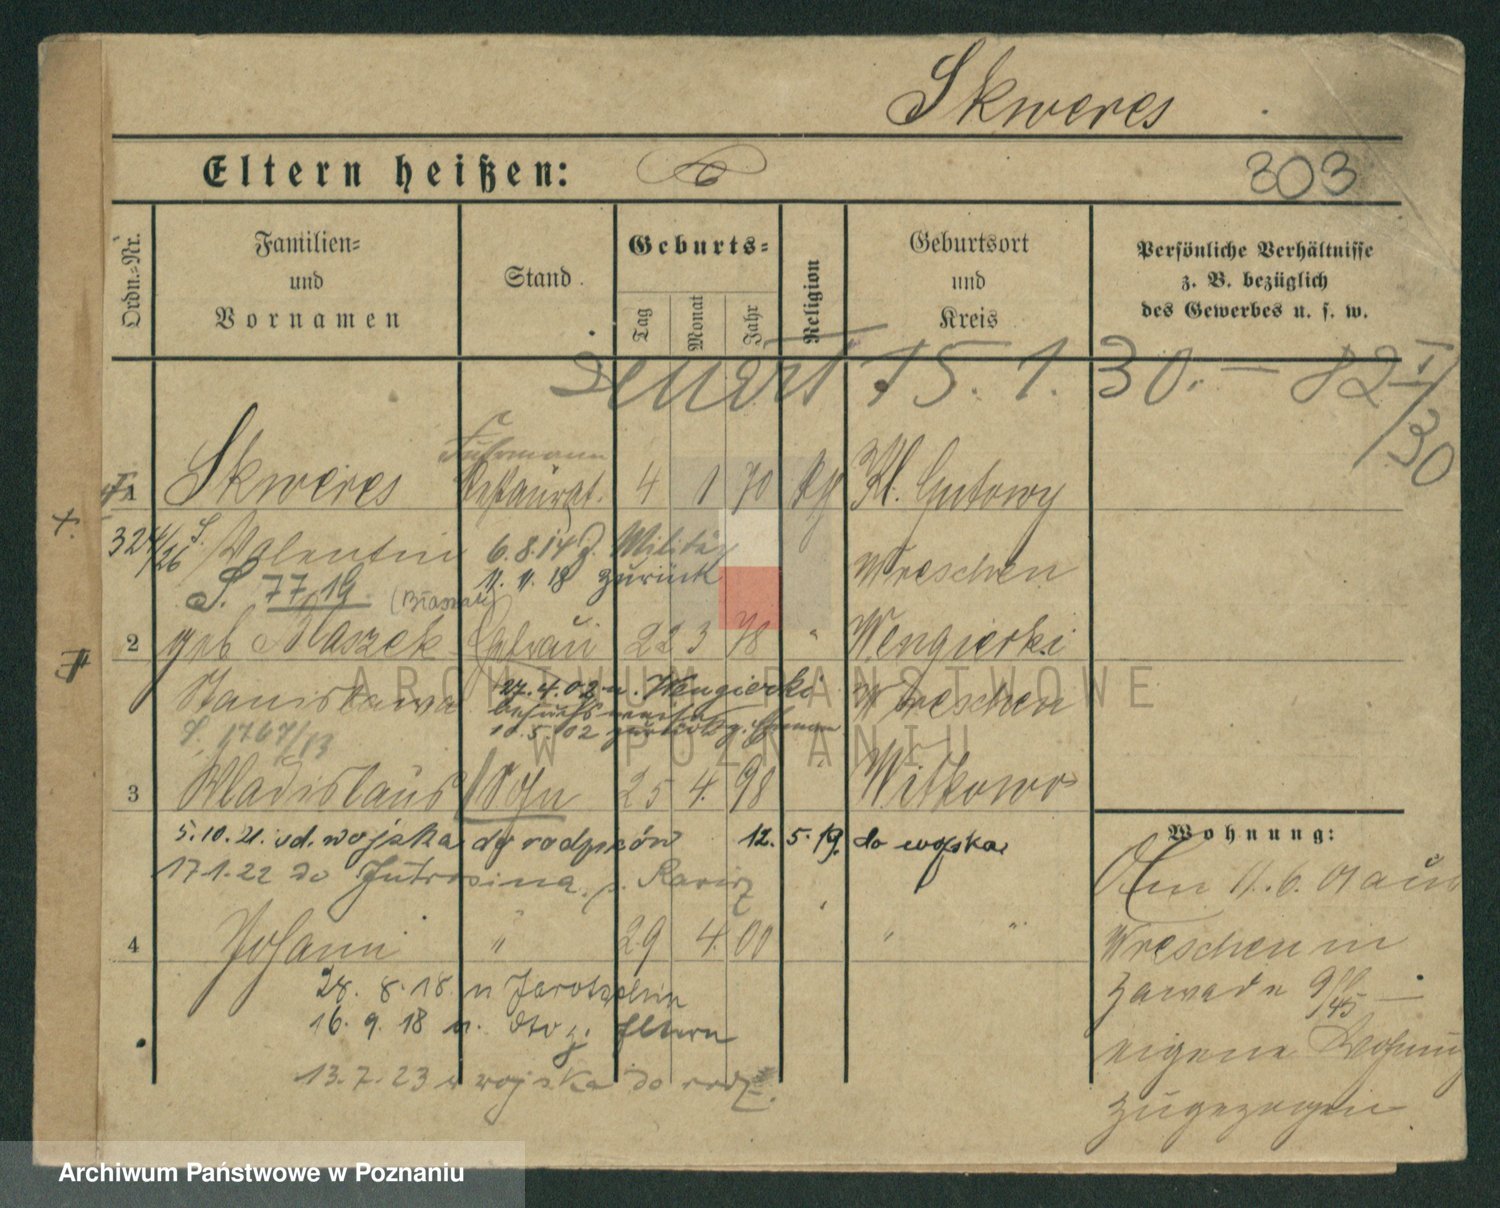 Skweres
Eltern heißen:
303
Ordn.=Nr.
Familien=
und
Vornamen
Stand.
Geburts=
Tag
Monat
Jahr
Religion
Geburtsort
und
Kreis
Persönliche Verhältnisse
z. B. bezüglich
des Gewerbes u. s. w.
15. 1. 30. — 82 I/30
Fuhrmann
1 Skweres Restaurat. 4 1 70 Kl. Gutowy
324/26 S. Valentin 6.8.14 z. Militär Wreschen
S. 7719 11. 11. 18 zurück
2 geb Blaszek Ehefrau 22 3 78 " Wengierki
Stanislawa 27.4.02 n. Wengierki Wreschen
besuchsweise
S. 1767/13 10.5.02 zurück
3 Wladislaus Sohn 25 4. 98 " Witkowo
5.10.21. od. wojska do rodziców 12. 5. 19. do wojska
17.1.22 do Jutrosina, p. Rawicz
4 Johann " 29 4. 00 " " "
28. 8. 18. n Jarotschin
16. 9. 18 n. Eltern
13. 7. 23 z wojska do rodz.
Wohnung:
Am 11. 6. 01 aus
Wreschen in
Zawade 9/10
eigene Wohnung
zugezogen
ARCHIWUM PAŃSTWOWE
W POZNANIU
Archiwum Państwowe w Poznaniu